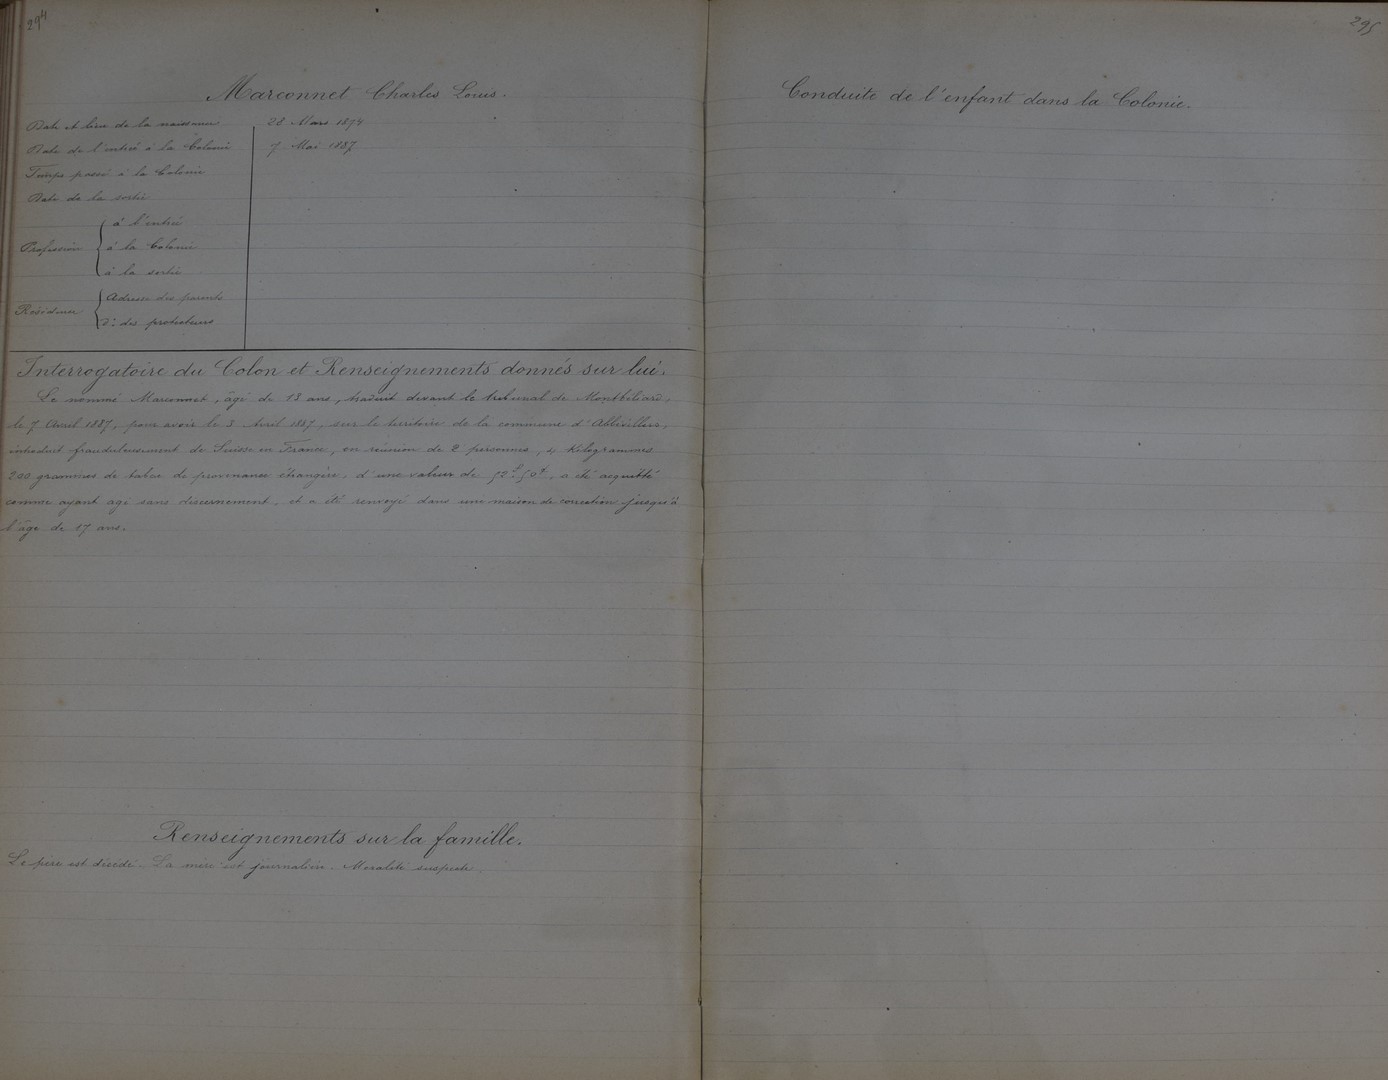 294
Marconnet Charles Louis.
Date et lieu de la naissance 28 Mars 1874
Date de l'entrée à la Colonie 7 Mai 1887
Temps passé à la Colonie
Date de la sortie
Profession
à l'entrée
à la Colonie
à la sortie
Résidence
Adresse des parents
d°: des protecteurs
Interrogatoire du Colon et Renseignements donnés sur lui.
Le nommé Marconnet, âgé de 13 ans, traduit devant le tribunal de Montbéliard,
le 7 Avril 1887, pour avoir le 3 Avril 1887, sur le territoire de la commune d'Abbévillers,
introduit frauduleusement de Suisse en France, en réunion de 2 personnes, 4 Kilogrammes
200 grammes de tabac de provenance étrangère, d'une valeur de 52f. 50c, a été acquitté
comme ayant agi sans discernement, et a été renvoyé dans une maison de correction jusqu'à
l'âge de 17 ans.
Renseignements sur la famille.
Le père est décédé. La mère est journalière. Moralité suspecte.
295
Conduite de l'enfant dans la Colonie.